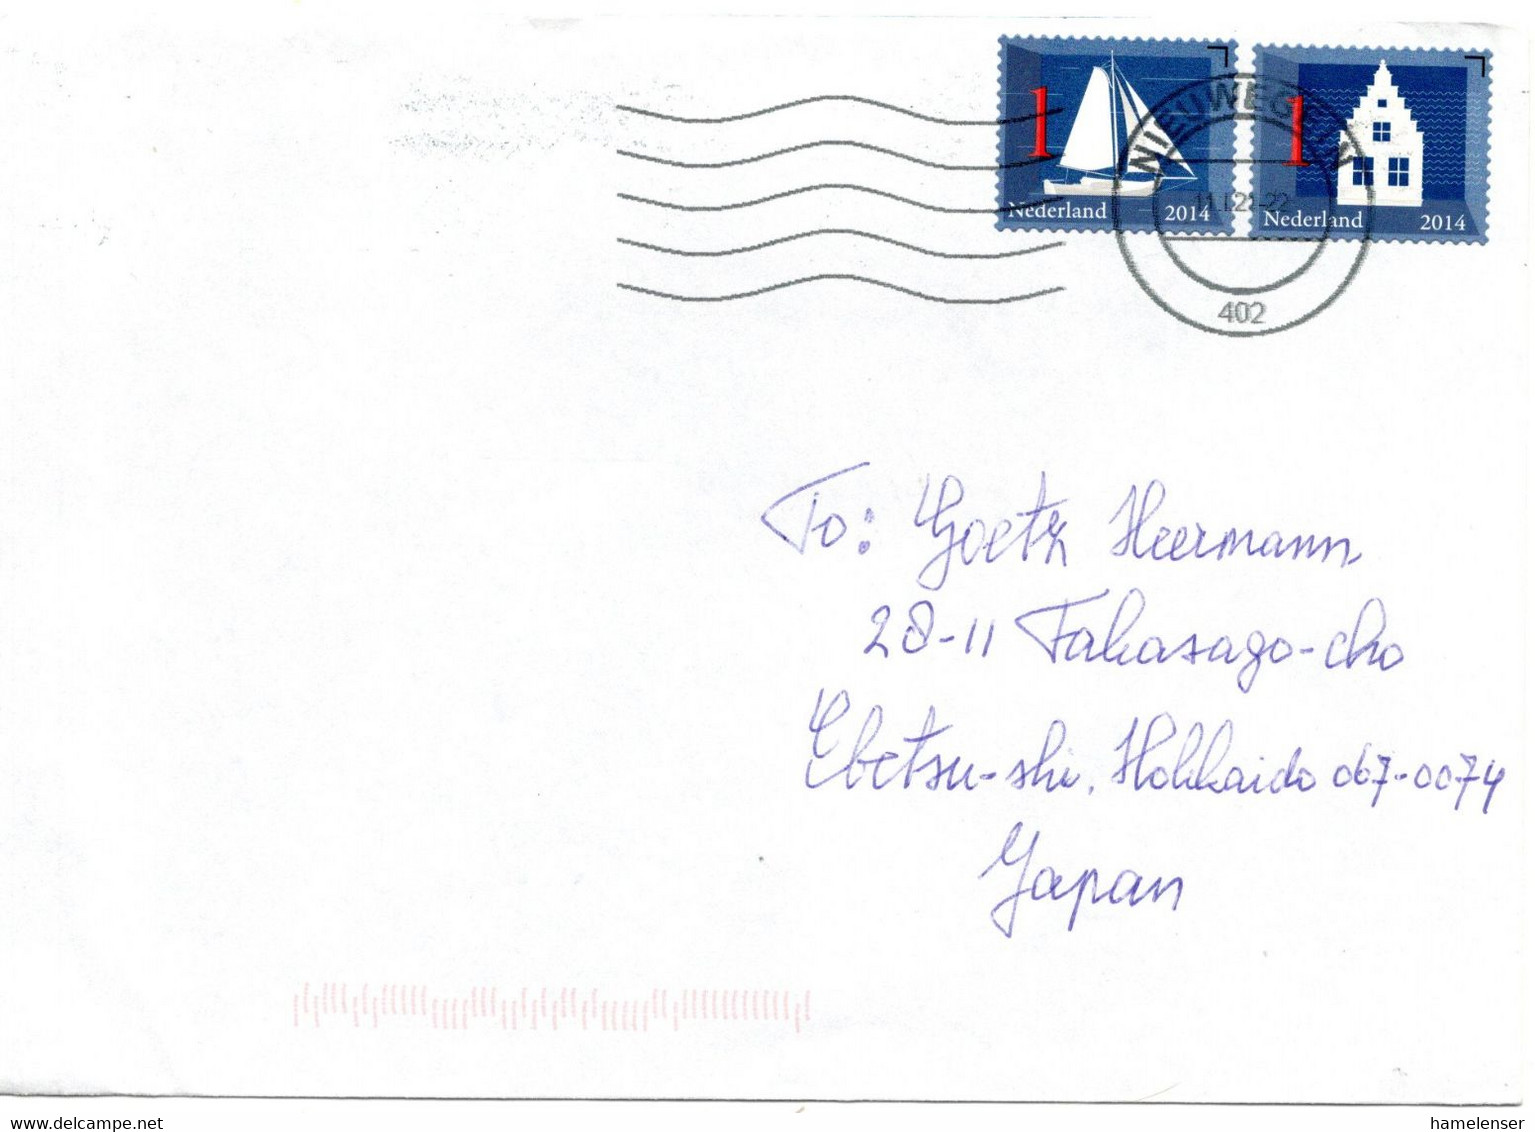 1
Nederland 2014
1
Nederland 2014
NIEUWEGEIN
402
To: Goetz Heermann
28-11 Takasago-cho
Ebetsu-shi, Hokkaido 067-0074
Japan
www.delcampe.net
hamelenser